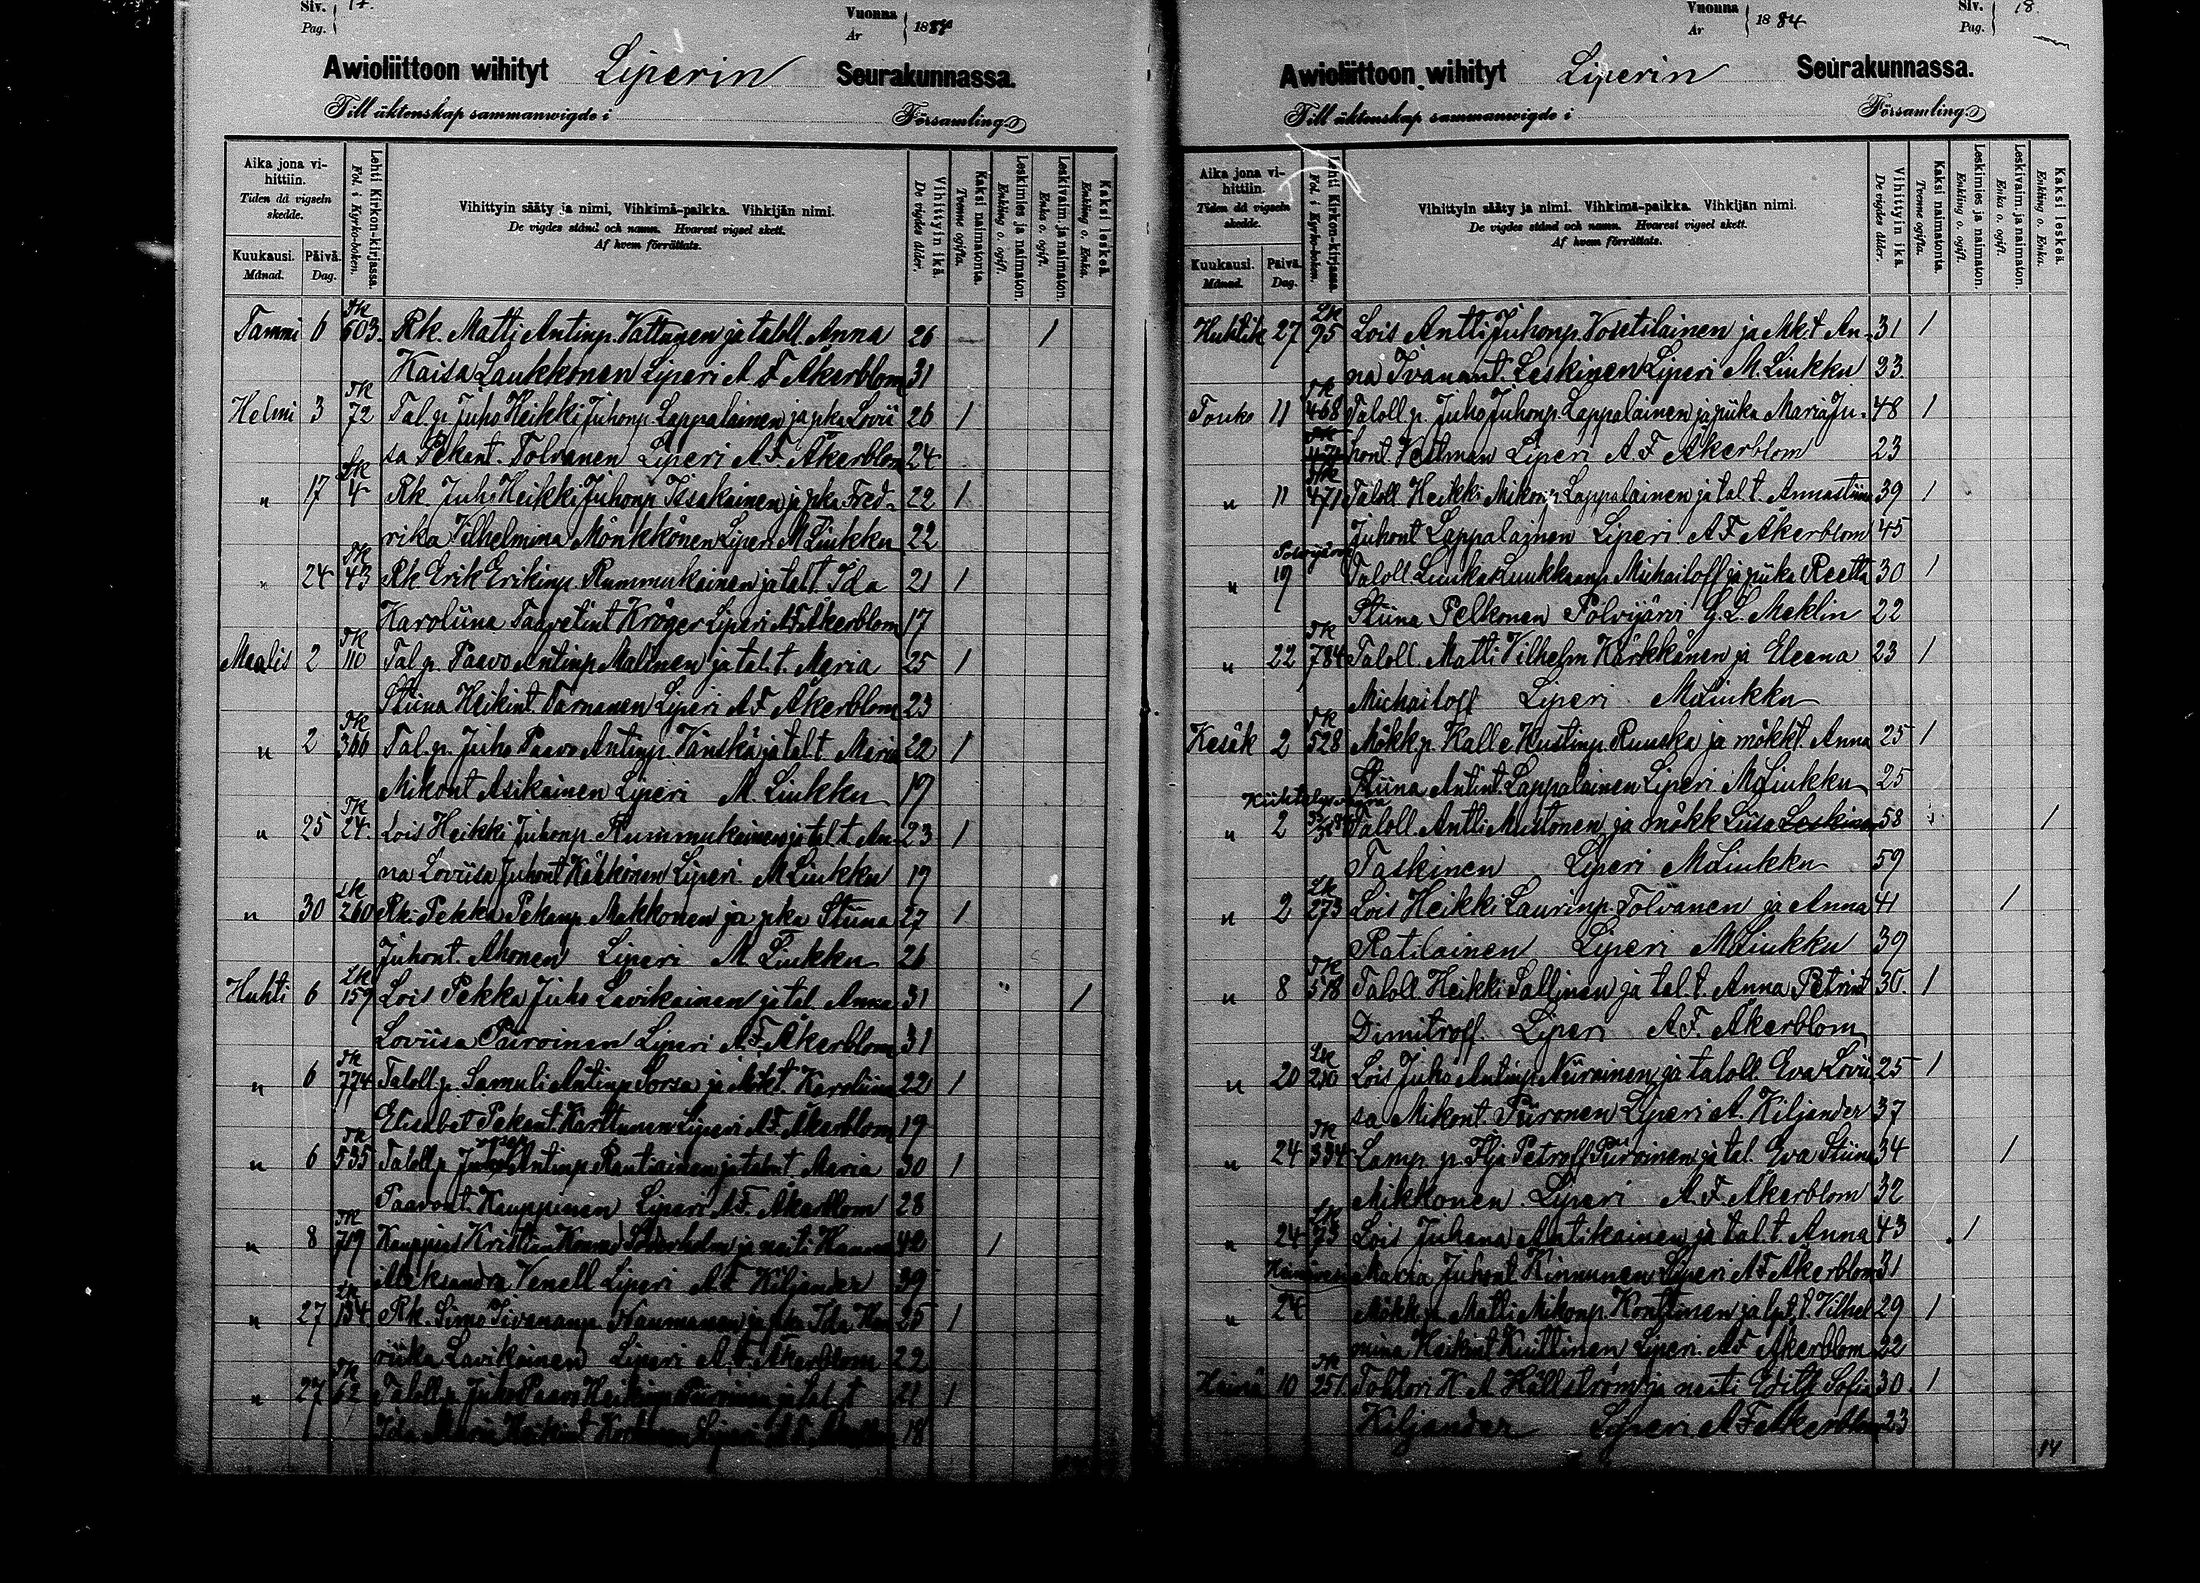 Siv. 17.
Pag.
Vuonna
År
1884
Awioliittoon wihityt Liperin Seurakunnassa.
Till äktenskap sammanwigde i Församling
Aika jona vihittiin.
Tiden då vigseln skedde.
Kuukausi. Månad.
Päivä. Dag.
Lehti Kirkon-kirjassa.
Fol. i Kyrko-boken.
Vihittyin sääty ja nimi, Vihkimä-paikka. Vihkijän nimi.
De vigdes stånd och namn. Hvarest vigsel skett.
Af hvem förrättats.
Vihittyin ikä. De vigdes ålder.
Kaksi naimatonta. Tvenne ogifta.
Leskimies ja naimaton. Enkling o. ogift.
Leskivaim. ja naimaton. Enka o. ogift.
Kaksi leskeä. Enkling o. Enka.
Tammi 6 TK 603. Rk. Matti Antinp. Vattunen ja taloll. Anna 26 1
Kaisa Laukkonen Liperi A F Åkerblom 31
Helmi 3 TK 72 Tal. p. Juho Heikki Juhonp. Lappalainen ja pka Lovii 26 1
sa Pekant. Tolvanen Liperi A. F. Åkerblom 24
" 17 4 Rk. Juho Heikki Juhonp. Issakainen ja pka Fred- 22 1
rika Vilhelmina Mönkkönen Liperi M Liukku 22
" 24 TK 43 Rk Erik Erikinp. Rummukainen ja tal.t. Ida 21 1
Karoliina Taavetint Kröger Liperi A F Åkerblom 17
Maalis 2 TK 110 Tal. p. Paavo Antinp. Malinen ja tal.t. Maria 25 1
Stiina Heikint Tarnanen Liperi A F Åkerblom 23
" 2 TK 366 Tal. p. Juho Paavo Antinp. Vänskä ja tal.t Maria 22 1
Mikont Asikainen Liperi M. Liukku 19
" 25 TK 24. Lois Heikki Juhonp. Rummukainen ja tal t An- 23 1
na Loviisa Juhont Käkkönen Liperi M Liukku 19
" 30 LK 260 Rk. Pekka Pekanp. Makkonen ja pka Stiina 27 1
Juhont. Ahonen Liperi M. Liukku 26
Huhti 6 LK 159 Lois Pekka Juho Lavikainen ja tal. Anna 31 1
Loviisa Piiroinen Liperi A. F. Åkerblom 31
" 6 TK 774 Taloll. p. Samuli Antinp. Sorsa ja Mökt. Karoliina 22 1
Elisabet Pekant. Karttunen Liperi A F. Åkerblom 19
" 6 TK 535 Taloll. p. Antinp. Rautiainen ja talont Maria 30 1
Paavont. Kauppinen Liperi A F. Åkerblom 28
" 8 TK 719 Kauppias Kristian Konrad Söderholm ja neiti Hanna 40 1
Aleksandra Venell Liperi A F Kiljander 39
" 27 LK 134 Rk. Simo Iivananp. Naumanen ja pka Ida Hen 25 1
riika Lavikainen Liperi A. F. Åkerblom 22
" 27 TK 62 Taloll. p. Juho Paavo Heikinp. Piiroinen ja tal. t 21 1
Ida Maria Heikint Liperi 18
Vuonna
År
1884
Siv. 18.
Pag.
Awioliittoon wihityt Liperin Seurakunnassa.
Till äktenskap sammanwigde i Församling
Aika jona vihittiin.
Tiden då vigseln skedde.
Kuukausi. Månad.
Päivä. Dag.
Lehti Kirkon-kirjassa.
Fol. i Kyrko-boken.
Vihittyin sääty ja nimi. Vihkimä-paikka. Vihkijän nimi.
De vigdes stånd och namn. Hvarest vigsel skett.
Af hvem förrättats.
Vihittyin ikä. De vigdes ålder.
Kaksi naimatonta. Tvenne ogifta.
Leskimies ja naimaton. Enkling o. ogift.
Leskivaim. ja naimaton. Enka o. ogift.
Kaksi leskeä. Enkling o. Enka.
Huhtik 27 LK 95 Lois Antti Juhonp. Voutilainen ja Mk.t An- 31 1
na Ivanant. Leskinen Liperi M. Liukku 33
Touko 11 TK 468 Taloll. p. Juho Juhonp. Lappalainen ja piika Maria Ju- 48 1
hont Vestman Liperi A F Åkerblom 23
" 11 TK 471 Taloll Heikki Mikonp Lappalainen ja tal t. Annastiina 39 1
Juhont Lappalainen Liperi A F Åkerblom 45
Polvijärvi
" 19 Taloll. Luuka Luukkaanp. Michailoff ja piika Reetta 30 1
Stiina Pelkonen Polvijärvi G. L. Meklin 22
" 22 TK 784 Taloll. Matti Vilhelm Kärkkänen ja Eleena 23 1
Michailoff Liperi M Liukku
Kesäk 2 TK 528 Mökk. p. Kalle Kustinp. Ruuska ja mökkt. Anna 25 1
Stiina Antint. Lappalainen Liperi M Liukku 25
Kiihtelysvaara
" 2 Taloll. Antti Mustonen ja mökk Liisa Leskinen 58 1
Taskinen Liperi M Liukku 59
" 2 LK 273 Lois Heikki Laurinp. Tolvanen ja Anna 41 1
Ratilainen Liperi M Liukku 39
" 8 TK 518 Taloll. Heikki Sallinen ja tal. t. Anna Petrint 30. 1
Dimitroff. Liperi A F. Åkerblom
" 20 LK 210 Lois Juho Antinp. Niiranen ja taloll. Eva Lovii 25 1
sa Mikont. Piironen Liperi A. Kiljander 37
" 24 TK 334 Lamp. p. Ilja Petroff Piiroinen ja tal. Eva Stiina 34 1
Mikkonen. Liperi A. F. Åkerblom 32
" 24 LK 73 Lois Juhana Antikainen ja tal. t. Anna 43 1
Maria Juhont Kinnunen Liperi A F Åkerblom 31
" 24 Mökk. p. Matti Mikonp. Konttinen ja lpt. t. Vilhel 29 1
mina Heikint Kuittinen Liperi. A F Åkerblom 22
Heinä 10 TK 251. Tohtori H A Hällström ja neiti Edith Sofia 30. 1
Kiljander Liperi A F Åkerblom 23
14